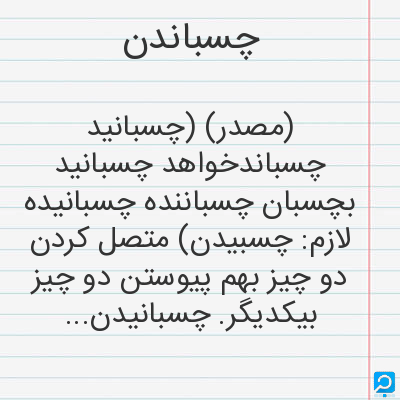 چسباندن
(مصدر) (چسبانید
چسباندخواهد چسبانید
بچسبان چسباننده چسبانیده
لازم: چسبیدن) متصل کردن
دو چیز بهم پیوستن دو چیز
بیکدیگر. چسبانیدن...